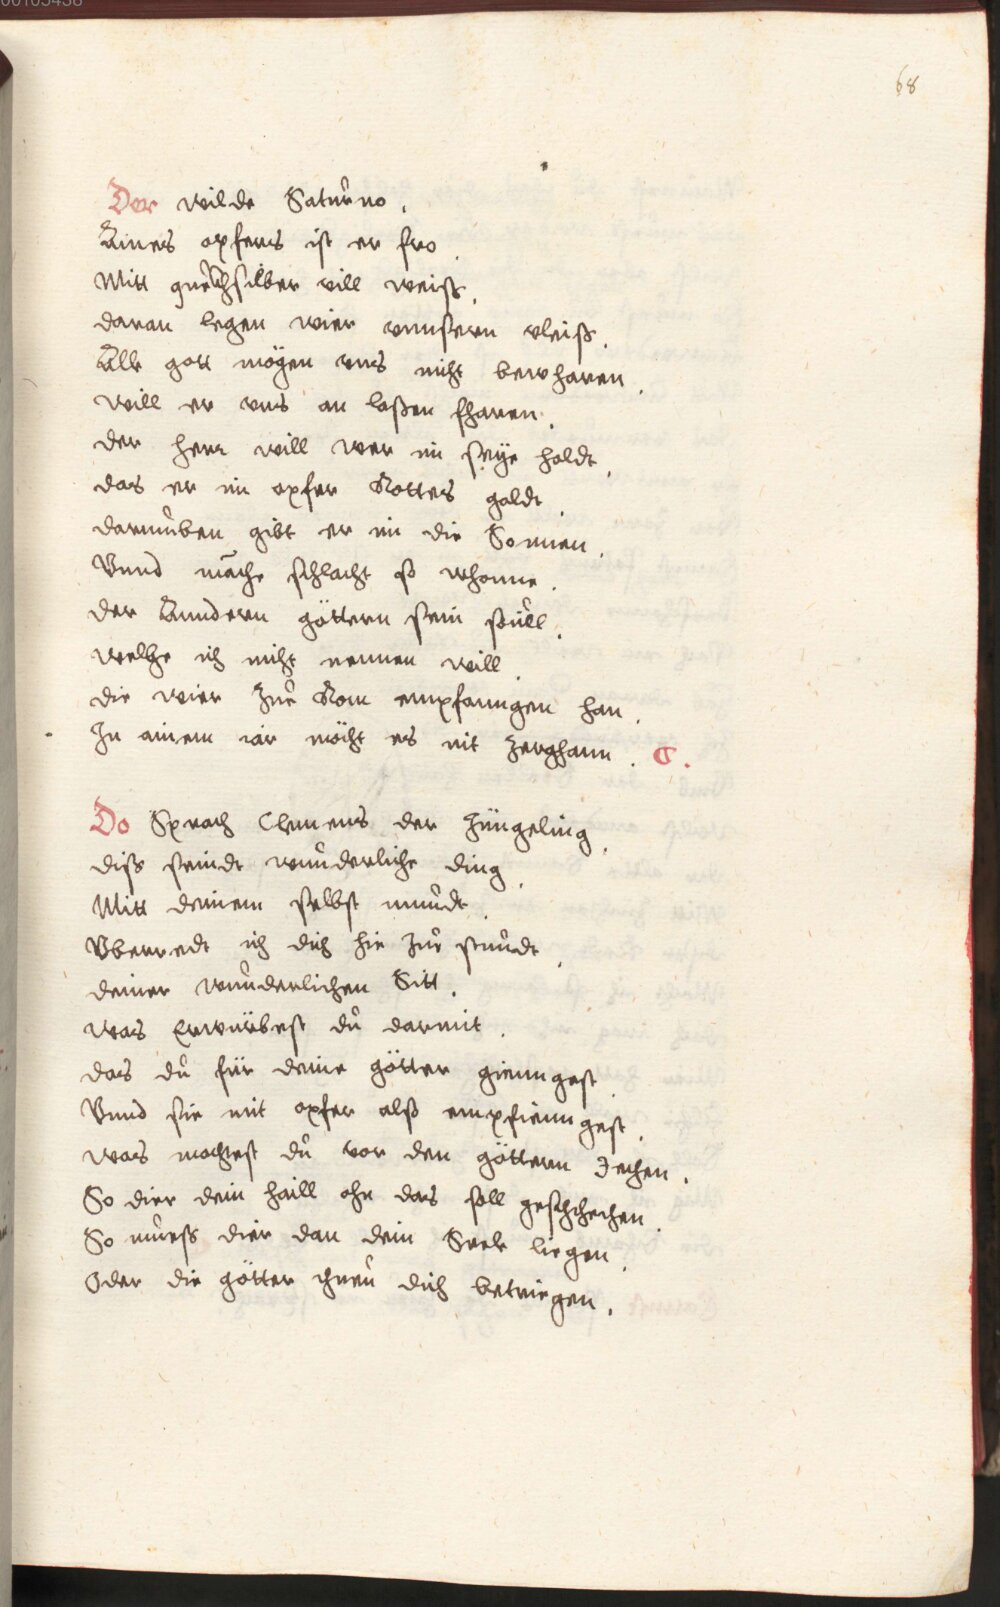 00105438
68
Der wilde Saturno.
Aines opfers ist er fro.
Mitt quechsilber vill weiß.
daran legen wier vnnsern vleiß.
Alle gott mögen vns nicht bewharen.
will er vns an laßen fharen.
der herr will wer im seye holdt.
das er im opfer Rottes goldt.
darnuben gibt er im die Sonnen.
Vnnd mache schlacht so whonne.
der Anndern göttern sein souill.
welche ich nicht nennen will.
die wier Zur Rom empfanngen han.
In ainem iar möcht es nit Zerghann. C.
Do Sprach Clemens der Jüngeling.
diß seindt wunderliche ding.
Mitt deinem selbst mundt.
Vberredt ich dich hie Zur stundt.
deiner wunderlichen Sitt.
was Erwürbest du darmit.
das du für deine götter gienngest.
Vnnd sie mit opfer alß empfienngest.
was mochtest du vor den göttern Jechen.
So dier dein haill ohn das soll geschechen.
So mueß dier dan dein Seele liegen.
Oder die götter thuen dich betriegen.